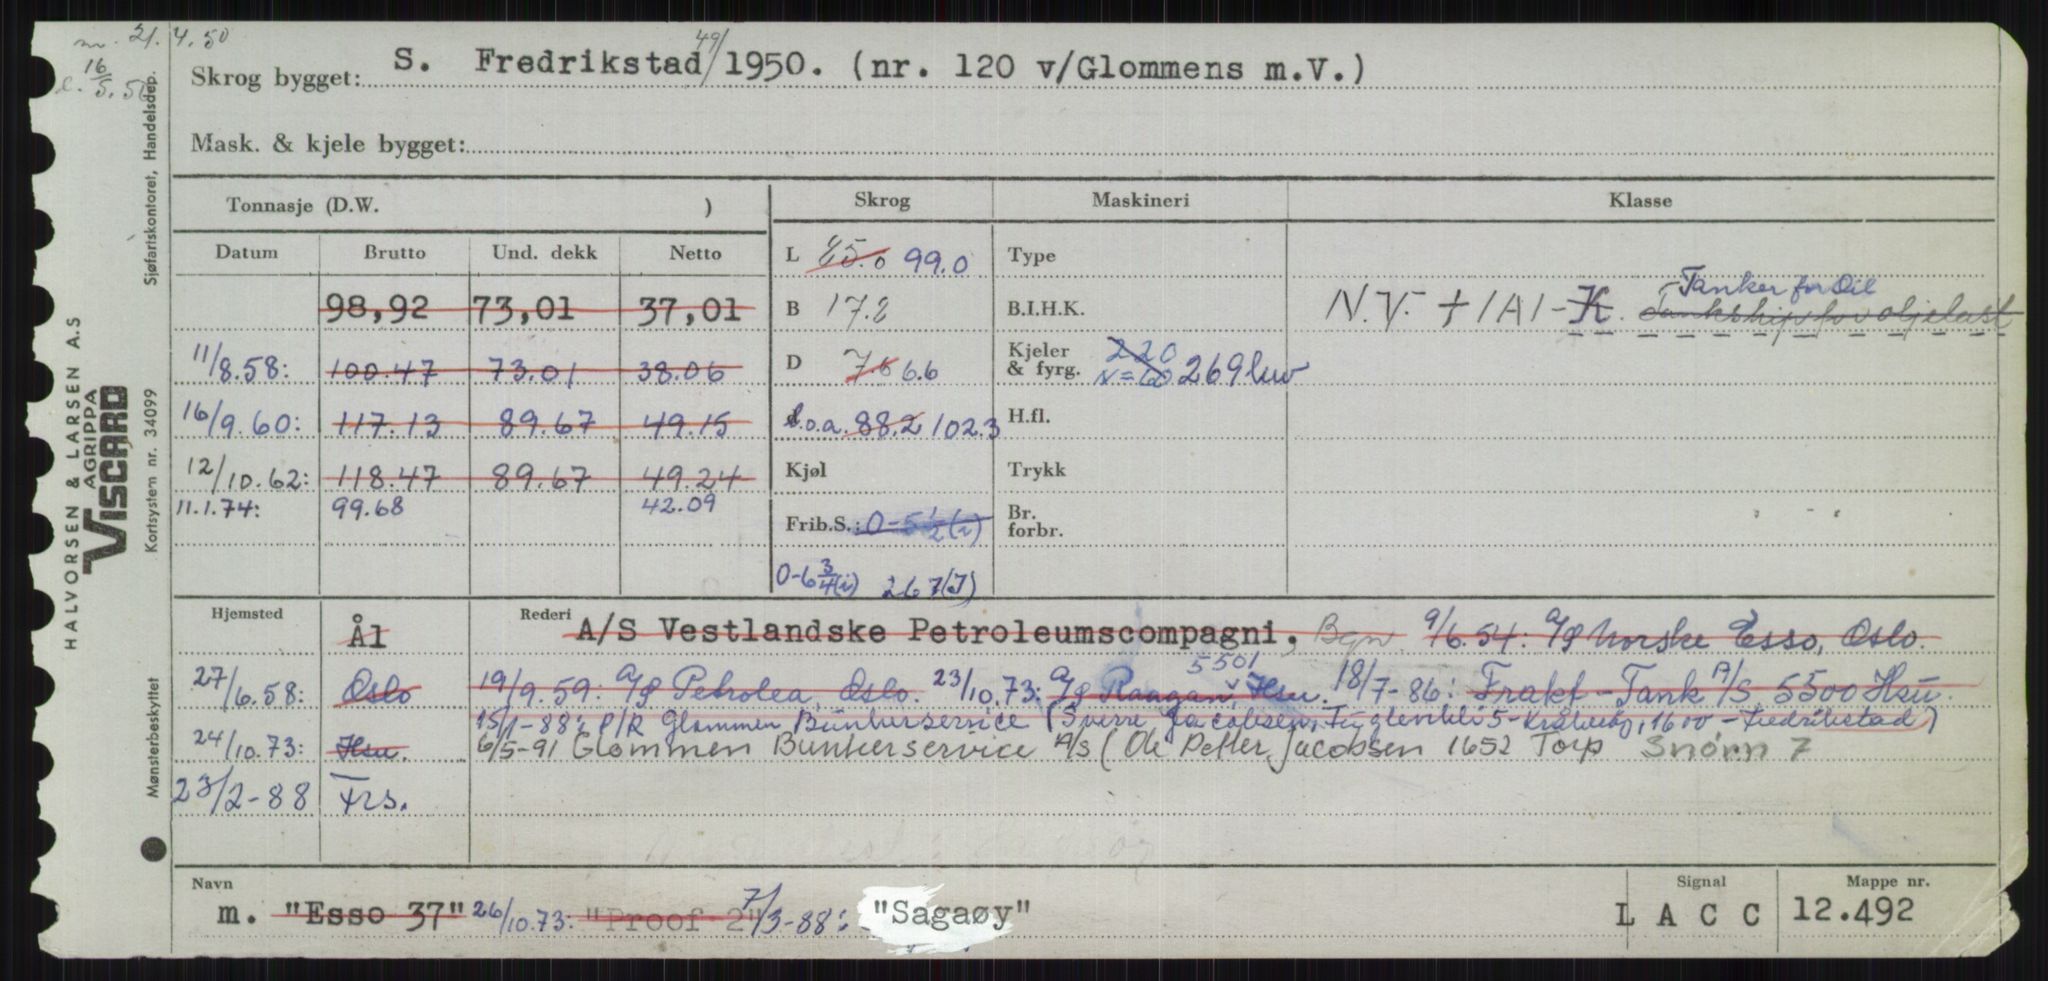 nr. 21.4.50
16/5.50
Skrog bygget: S. Fredrikstad 49/1950. (nr. 120 v/Glommens m.V.)
Mask. & kjele bygget:
Tonnasje (D.W. )
Skrog Maskineri Klasse
Datum Brutto Und. dekk Netto
98,92 73,01 37,01
11/8.58: 100.47 73.01 38.06
16/9.60: 117.13 89.67 49.15
12/10.62: 118.47 89.67 49.24
11.1.74: 99.68 42.09
L 85.0 99.0
B 17.2
D 7.6 6.6
l.o.a. 88.2 102.3
Kjøl
Frib.S.: 0-5 1/2 (i)
0-6 3/4 (i) 267 (J)
Type
B.I.H.K.
Kjeler & fyrg. 220 N=60 269 kw
H.fl.
Trykk
Br. forbr.
Tanker for Oil
N.V. + 1A1 - K. Tankskip for oljelast
Hjemsted Rederi
Ål A/S Vestlandske Petroleumscompagni, Bgn 9/6.54: A/S Norske Esso, Oslo.
5501
27/6.58: Oslo 19/9.59: A/S Petrolea, Oslo. 23/10.73: A/S Raagan, Hsu. 18/7-86: Frakt-Tank A/S 5500 Hsu.
15/1-88: P/R Glommen Bunkerservice (Sverre Jacobsen, Fuglevikli 5 - Kråkerøy, 1600 - Fredrikstad)
24/10.73: Hsu. 6/5-91 Glommen Bunkerservice A/S (Ole Petter Jacobsen 1652 Torp
23/2-88 Frs.
Navn Signal Mappe nr.
m. "Esso 37" 26/10.73: "Proof 2" 7/3-88: "Sagaøy" L A C C 12.492
HALVORSEN & LARSEN A.S
AGRIPPA
VISCARD
Sjøfartskontoret, Handelsdep.
Kortsystem nr. 34099
Mønsterbeskyttet